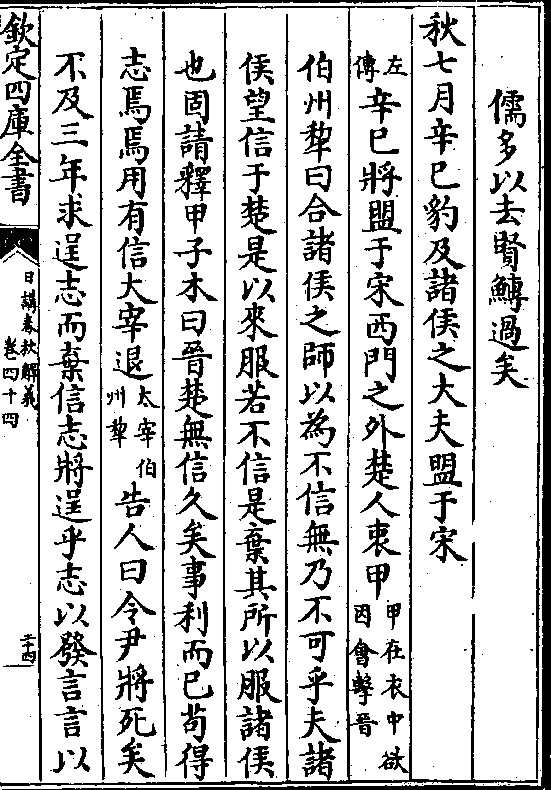 儒多以去賢鱄過矣
秋七月辛巳豹及諸侯之大夫盟于宋
左傳辛巳將盟于宋西門之外楚人衷甲甲在衣中欲因會擊晉
伯州犂曰合諸侯之師以為不信無乃不可乎夫諸
侯望信于楚是以來服若不信是棄其所以服諸侯
也固請釋甲子木曰晉楚無信久矣事利而已苟得
志焉焉用有信大宰退太宰伯州犂告人曰令尹將死矣
不及三年求逞志而棄信志將逞乎志以發言言以
欽定四庫全書
日講春秋解義
卷四十四
二十四